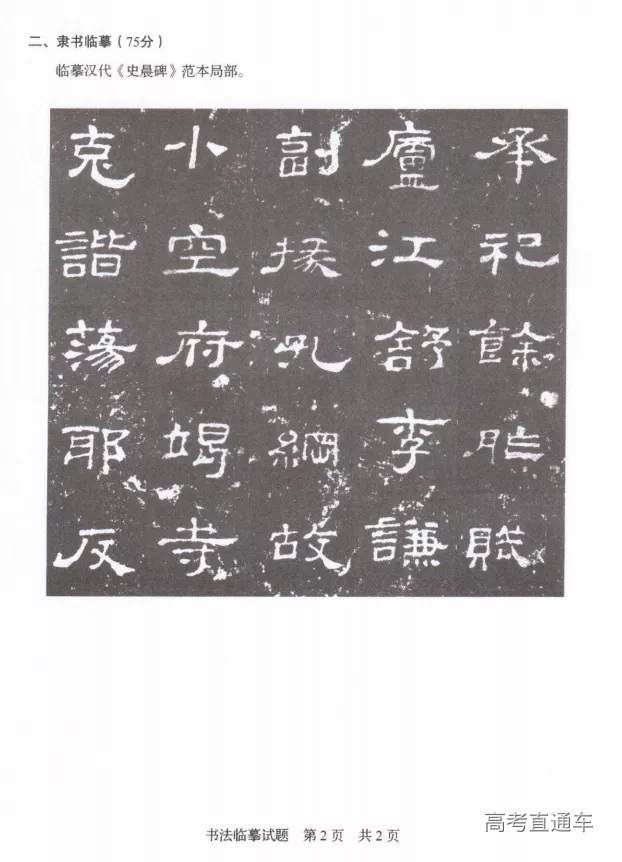 二、隶书临摹（75分）
临摹汉代《史晨碑》范本局部。
承祀餘胙賦
廬江舒李謙
副掾孔綱故
小空府竭寺
克諧蕩耶反
书法临摹试题 第2页 共2页
高考直通车